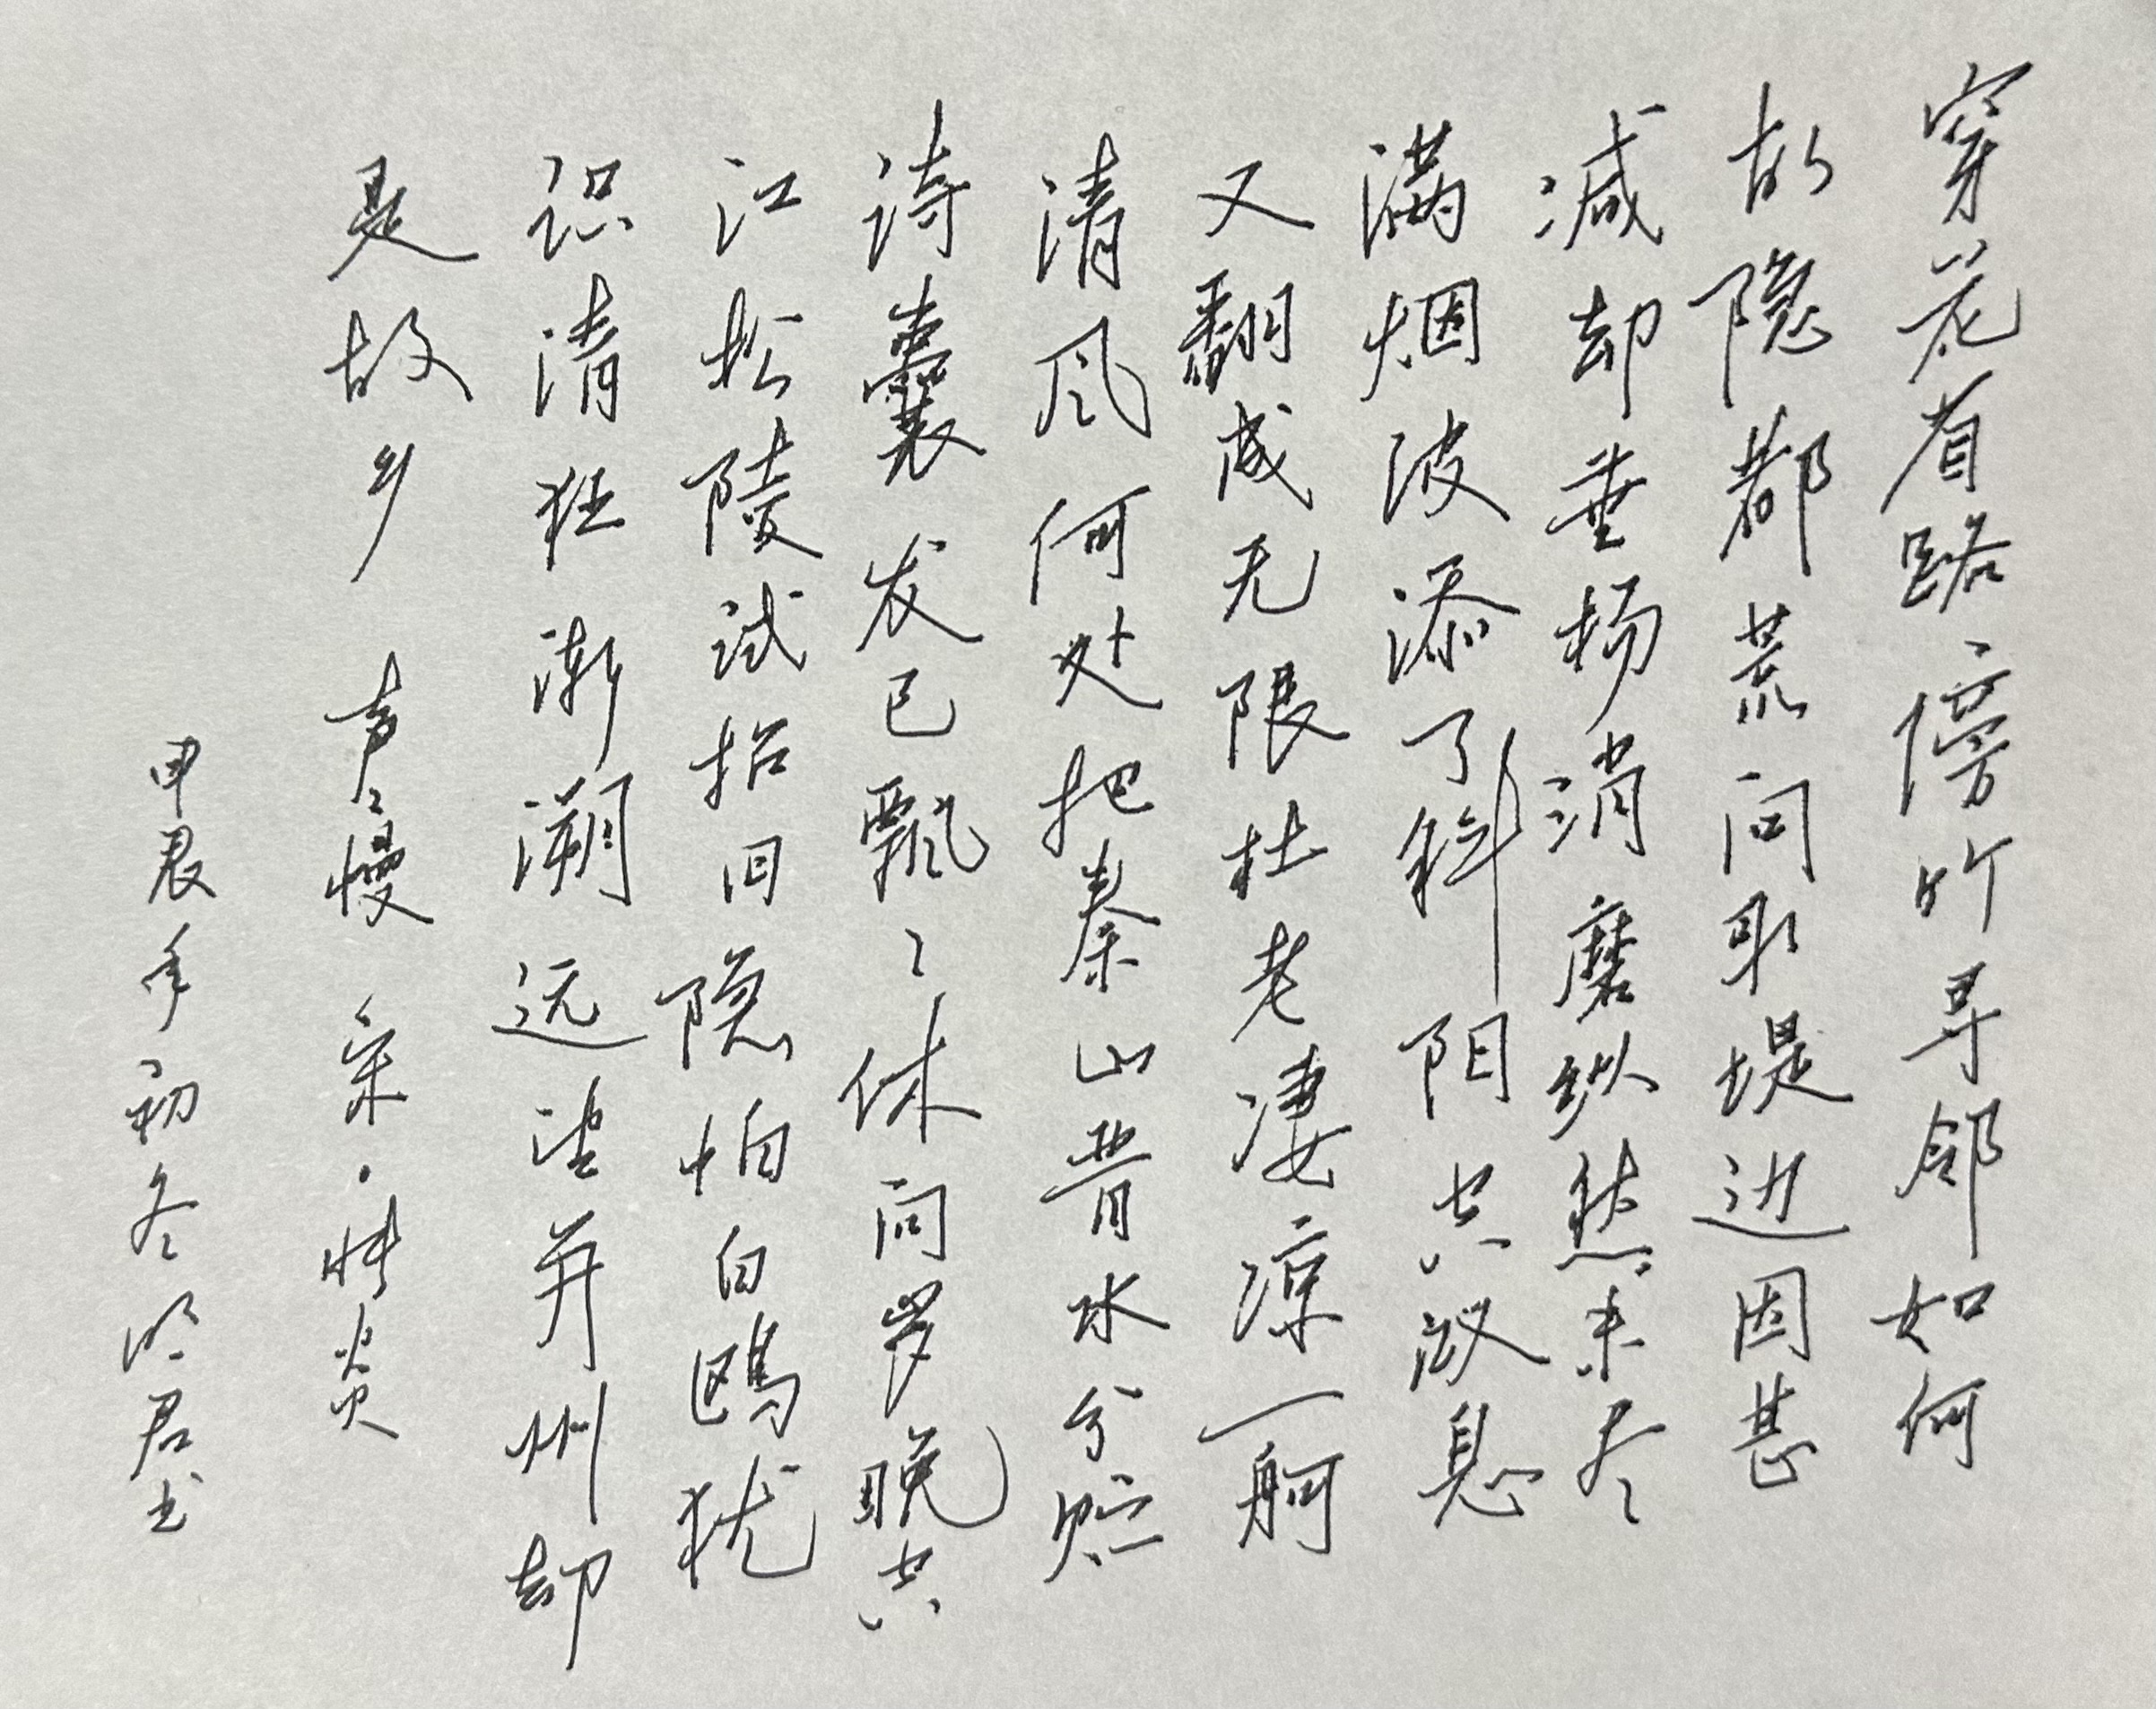 穿花省路傍竹寻邻如何
故隐都荒问取堤边因甚
减却垂杨消磨纵然未尽
满烟波添了斜阳空叹息
又翻成无限杜老凄凉一舸
清风何处把秦山晋水分贮
诗囊发已飘々休问岁晚空
江松陵试招旧隐怕白鸥犹
识清狂渐溯远望并州却
是故乡 声々慢 宋·张炎
甲辰年初冬君书